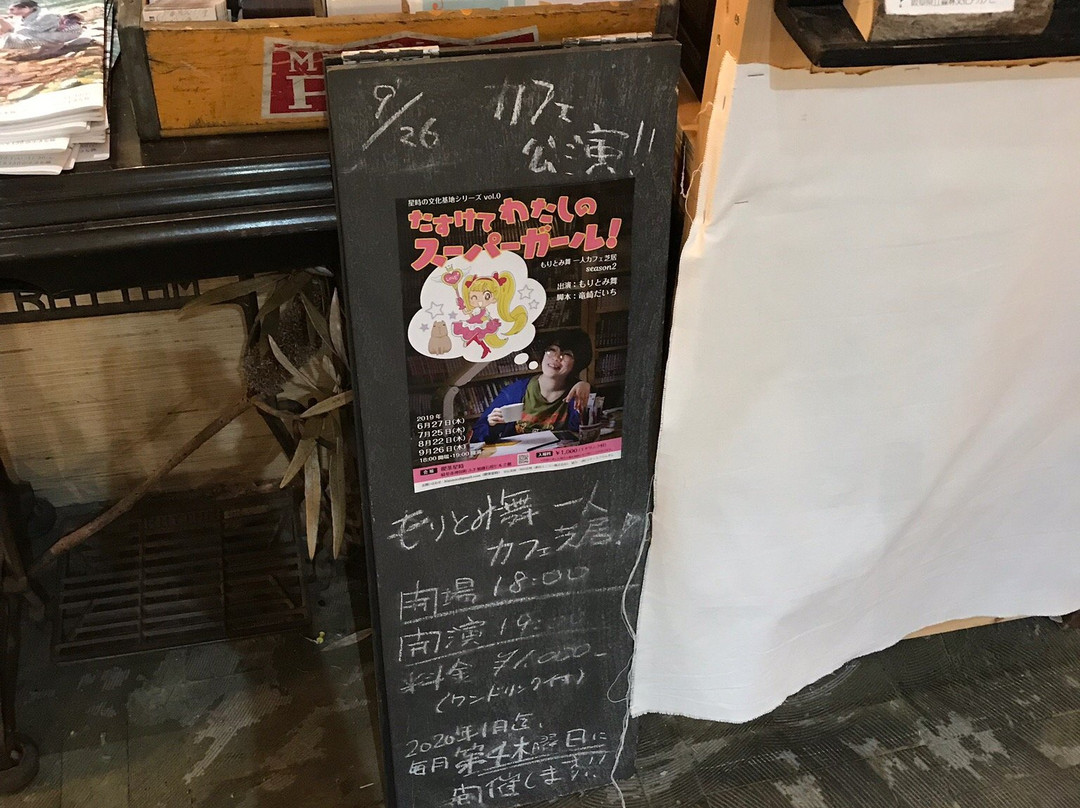 9/26 カフェ
公演!!
星時の文化基地シリーズ vol.0
たすけて わたしの
スーパーガール!
もりとみ舞 一人カフェ芝居
season2
出演:もりとみ舞
脚本:竜崎だいち
2019年
6月27日(木)
7月25日(木)
8月22日(木)
9月26日(木)
18:00開場・19:00開演
会場 喫茶星時
入場料 ¥1,000
もりとみ舞 一人
カフェ芝居!
開場 18:00
開演 19:00
料金 ¥1000-
(ワンドリンク付)
2020年1月迄、
毎月 第4木曜日に
開催します!!